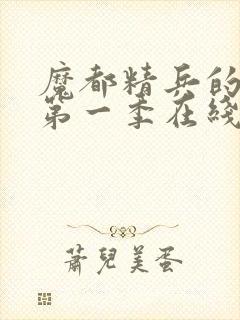 魔都精兵的
第一季在线
萧儿美蛋